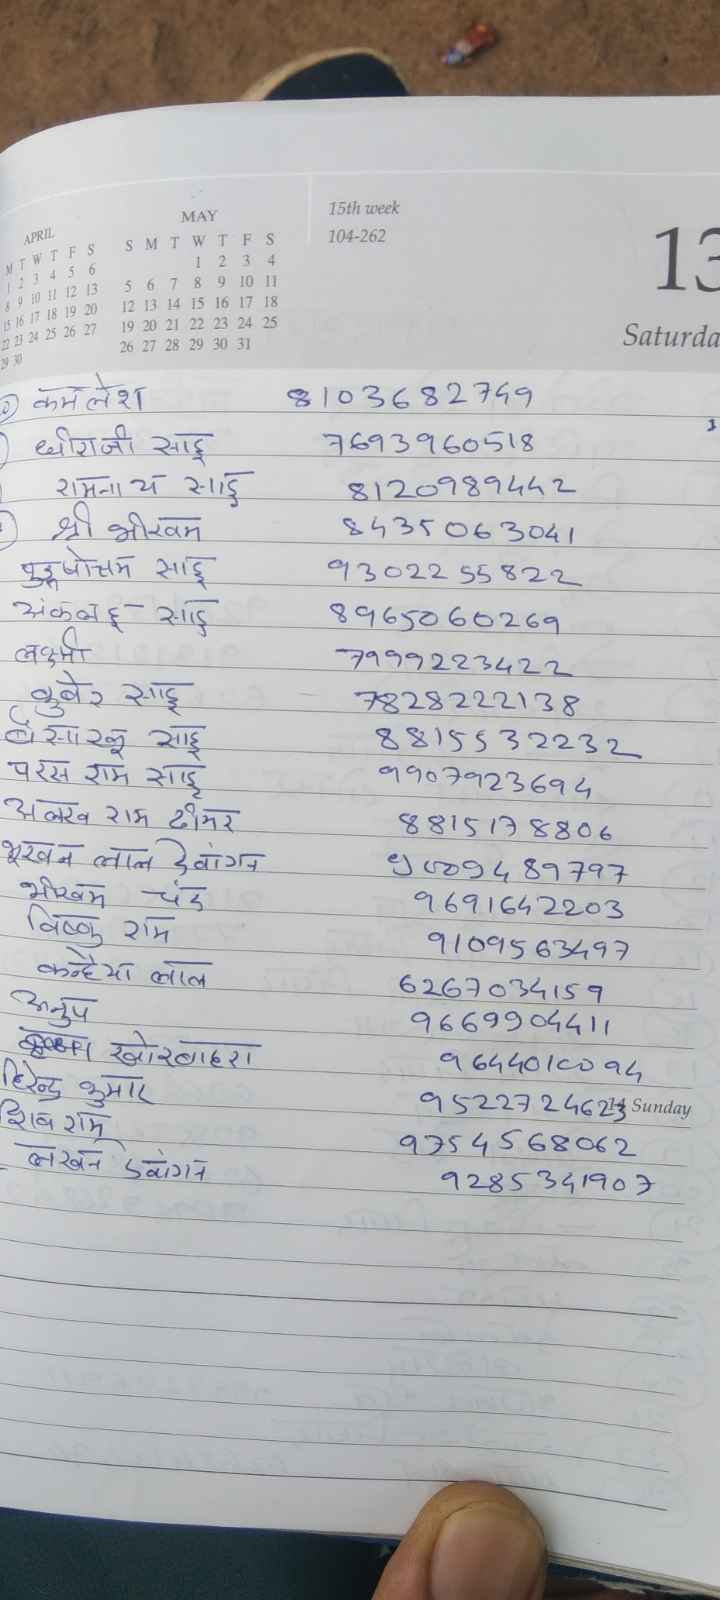 APRIL
M T W T F S
1 2 3 4 5 6
8 9 10 11 12 13
15 16 17 18 19 20
22 23 24 25 26 27
29 30
MAY
S M T W T F S
1 2 3 4
5 6 7 8 9 10 11
12 13 14 15 16 17 18
19 20 21 22 23 24 25
26 27 28 29 30 31
15th week
104-262
13
Saturda
कमलेश 8103682749
धीराजी साहू 7693960518
रामनाथ साहू 8120989442
श्री भीखम 8435063041
पुरुषोत्तम साहू 9302255822
साहू 8965060269
लक्ष्मी 7999223422
कुबेर साहू 7828222138
बैसारवू साहू 8815532232
परस राम साहू 9907923694
अलख राम ढीमर 8815178806
भूखन लाल देवांगन 489797
भीखम चंद 9691642203
विष्णु राम 9109563497
कन्हैया लाल 6267034159
अनुप 9669904411
खोरबाहरा 9644010094
हिरेन्द्र कुमार 9522724623
14 Sunday
शिव राम 9754568062
लखन देवांगन 9285341907